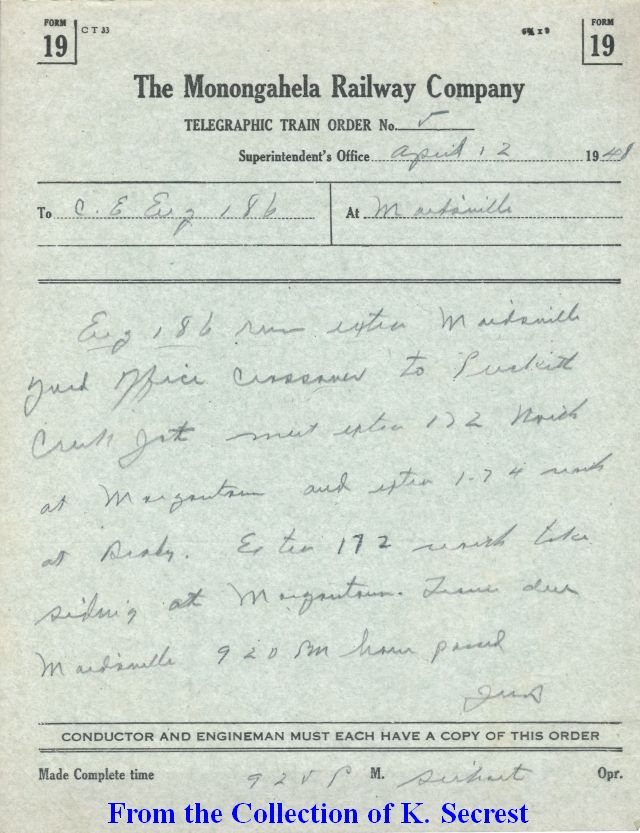 FORM 19 CT 33 6¾ x 9 FORM 19
The Monongahela Railway Company
TELEGRAPHIC TRAIN ORDER No. 5
Superintendent's Office April 12 1948
To C. E Eng 186 At Maidsville
Eng 186 run extra Maidsville
Yard Office Crossover to
Creek Jct meet extra 172 North
at Morgantown and extra 174 north
at . Extra 172 north take
siding at Morgantown. Trains due
Maidsville 920 PM have passed
CONDUCTOR AND ENGINEMAN MUST EACH HAVE A COPY OF THIS ORDER
Made Complete time 925 P M. Opr.
From the Collection of K. Secrest